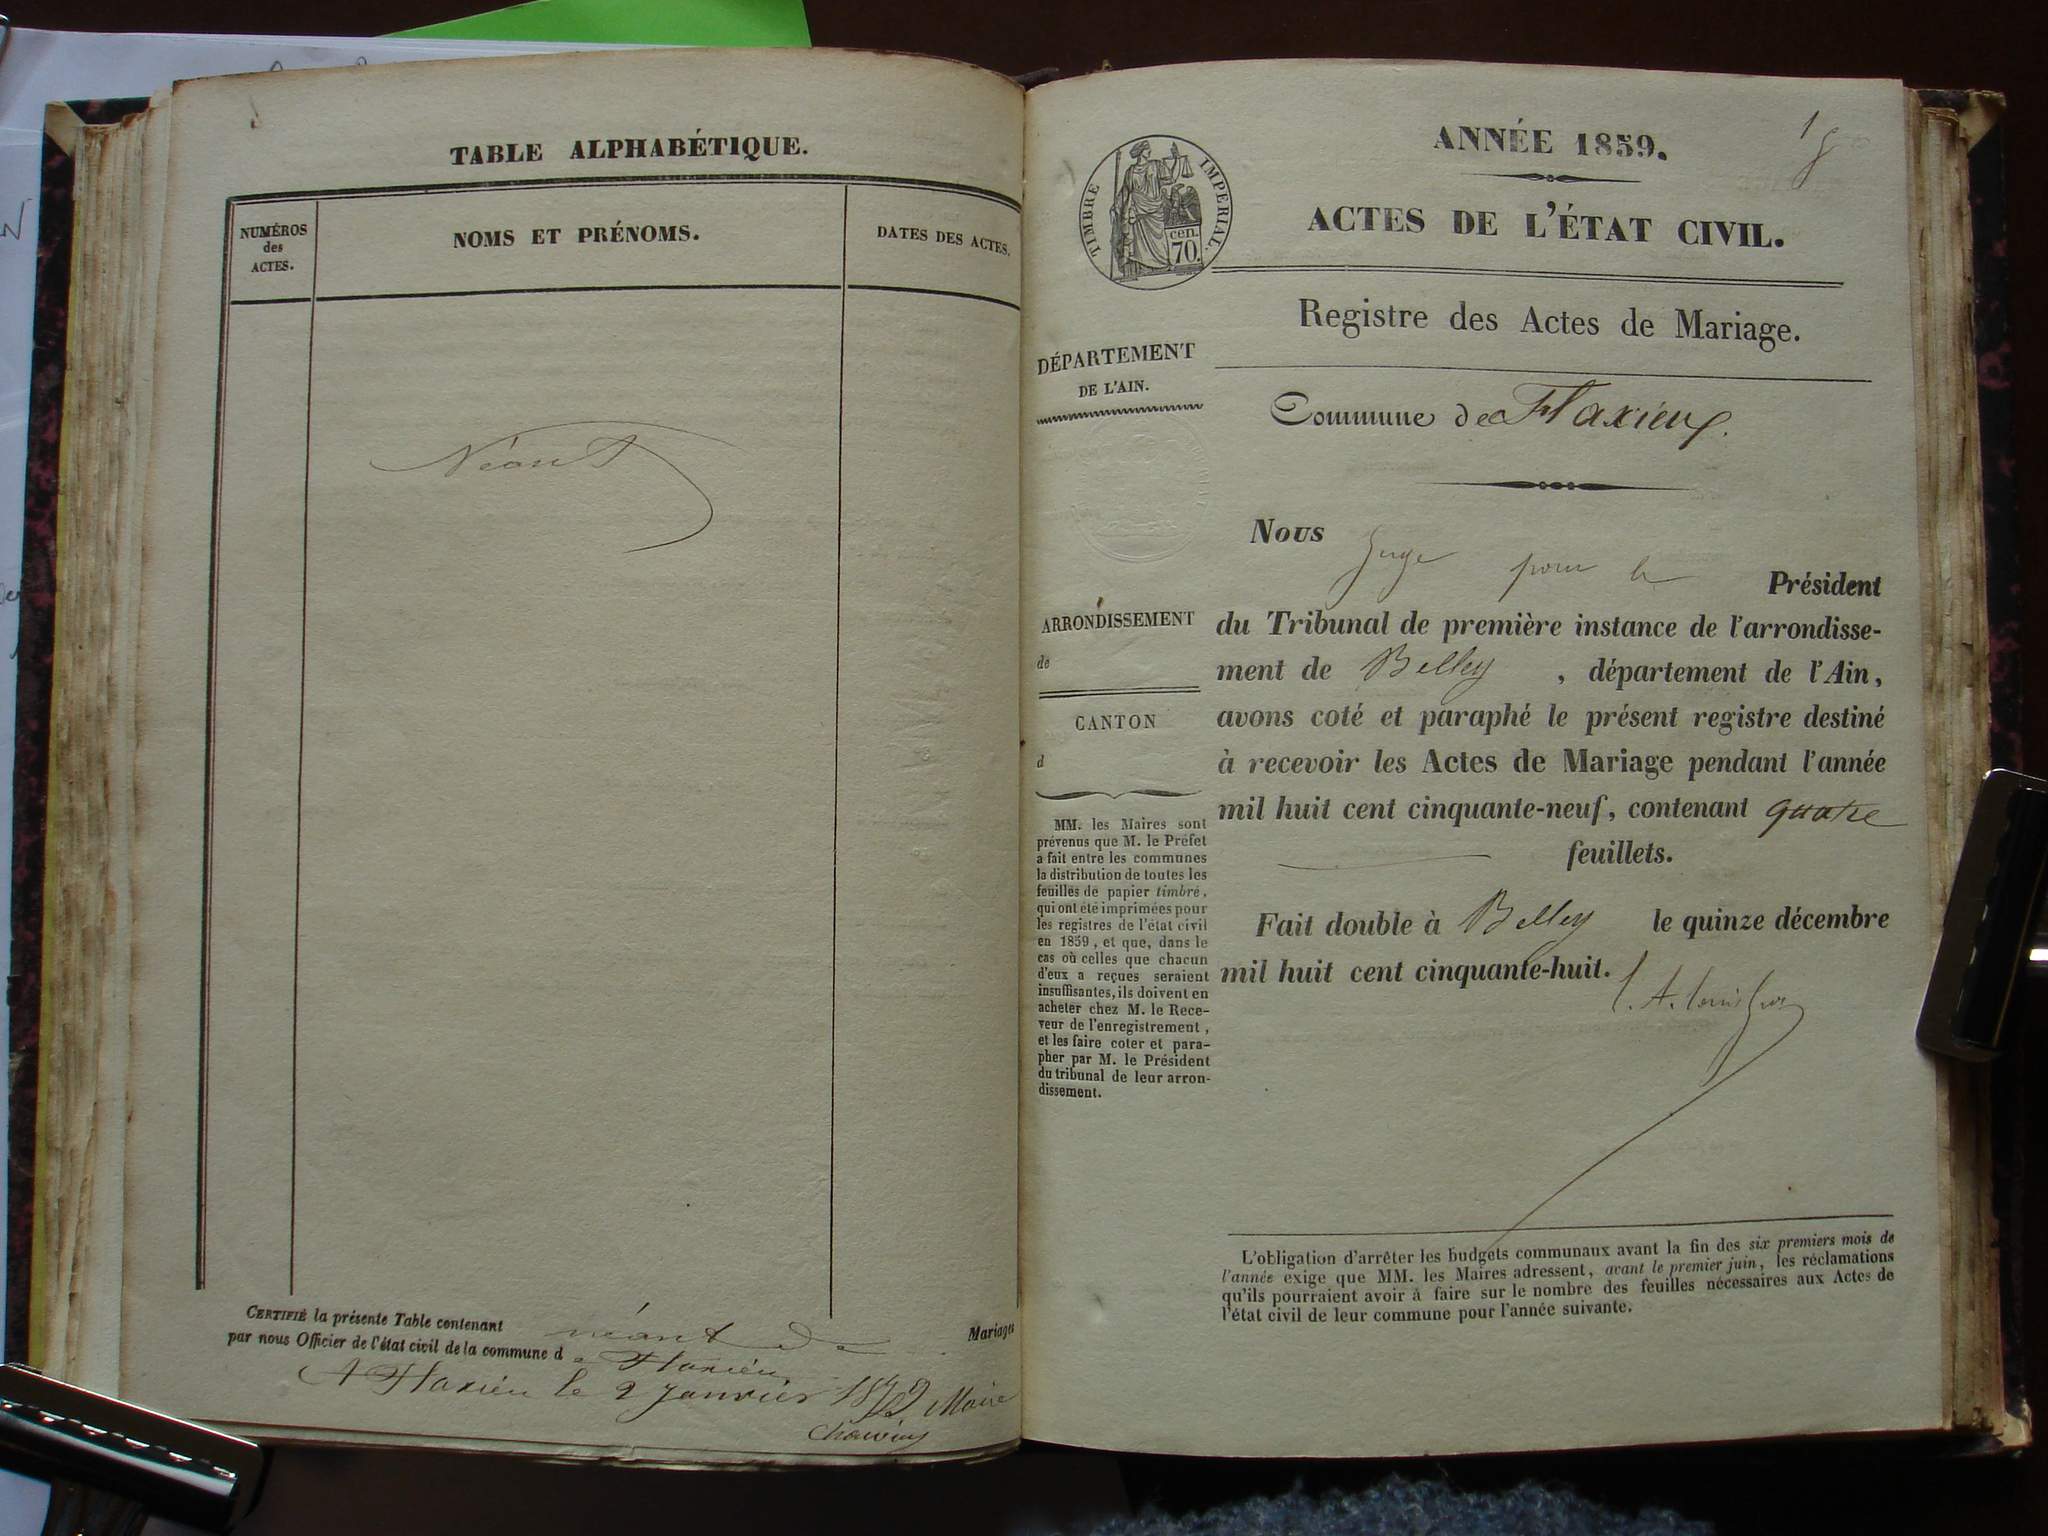 TABLE ALPHABÉTIQUE.
NUMÉROS
des
ACTES.
NOMS ET PRÉNOMS.
DATES DES ACTES.
Néant
CERTIFIÉ la présente Table contenant néant de Mariages
par nous Officier de l'état civil de la commune d e Flaxieu
A Flaxieu le 2 Janvier Maire
ANNÉE 1859.
TIMBRE IMPERIAL.
cen.
70.
ACTES DE L'ÉTAT CIVIL.
Registre des Actes de Mariage.
Commune de Flaxieu.
DÉPARTEMENT
DE L'AIN.
ARRONDISSEMENT
de
CANTON
d
MM. les Maires sont
prévenus que M. le Préfet
a fait entre les communes
la distribution de toutes les
feuilles de papier timbré,
qui ont été imprimées pour
les registres de l'état civil
en 1859, et que, dans le
cas où celles que chacun
d'eux a reçues seraient
insuffisantes, ils doivent en
acheter chez M. le Rece-
veur de l'enregistrement,
et les faire coter et para-
pher par M. le Président
du tribunal de leur arron-
dissement.
Nous Juge pour le Président
du Tribunal de première instance de l'arrondisse-
ment de Belley , département de l'Ain,
avons coté et paraphé le présent registre destiné
à recevoir les Actes de Mariage pendant l'année
mil huit cent cinquante-neuf, contenant quatre
feuillets.
Fait double à Belley le quinze décembre
mil huit cent cinquante-huit.
L'obligation d'arrêter les budgets communaux avant la fin des six premiers mois de
l'année exige que MM. les Maires adressent, avant le premier juin, les réclamations
qu'ils pourraient avoir à faire sur le nombre des feuilles nécessaires aux Actes de
l'état civil de leur commune pour l'année suivante.